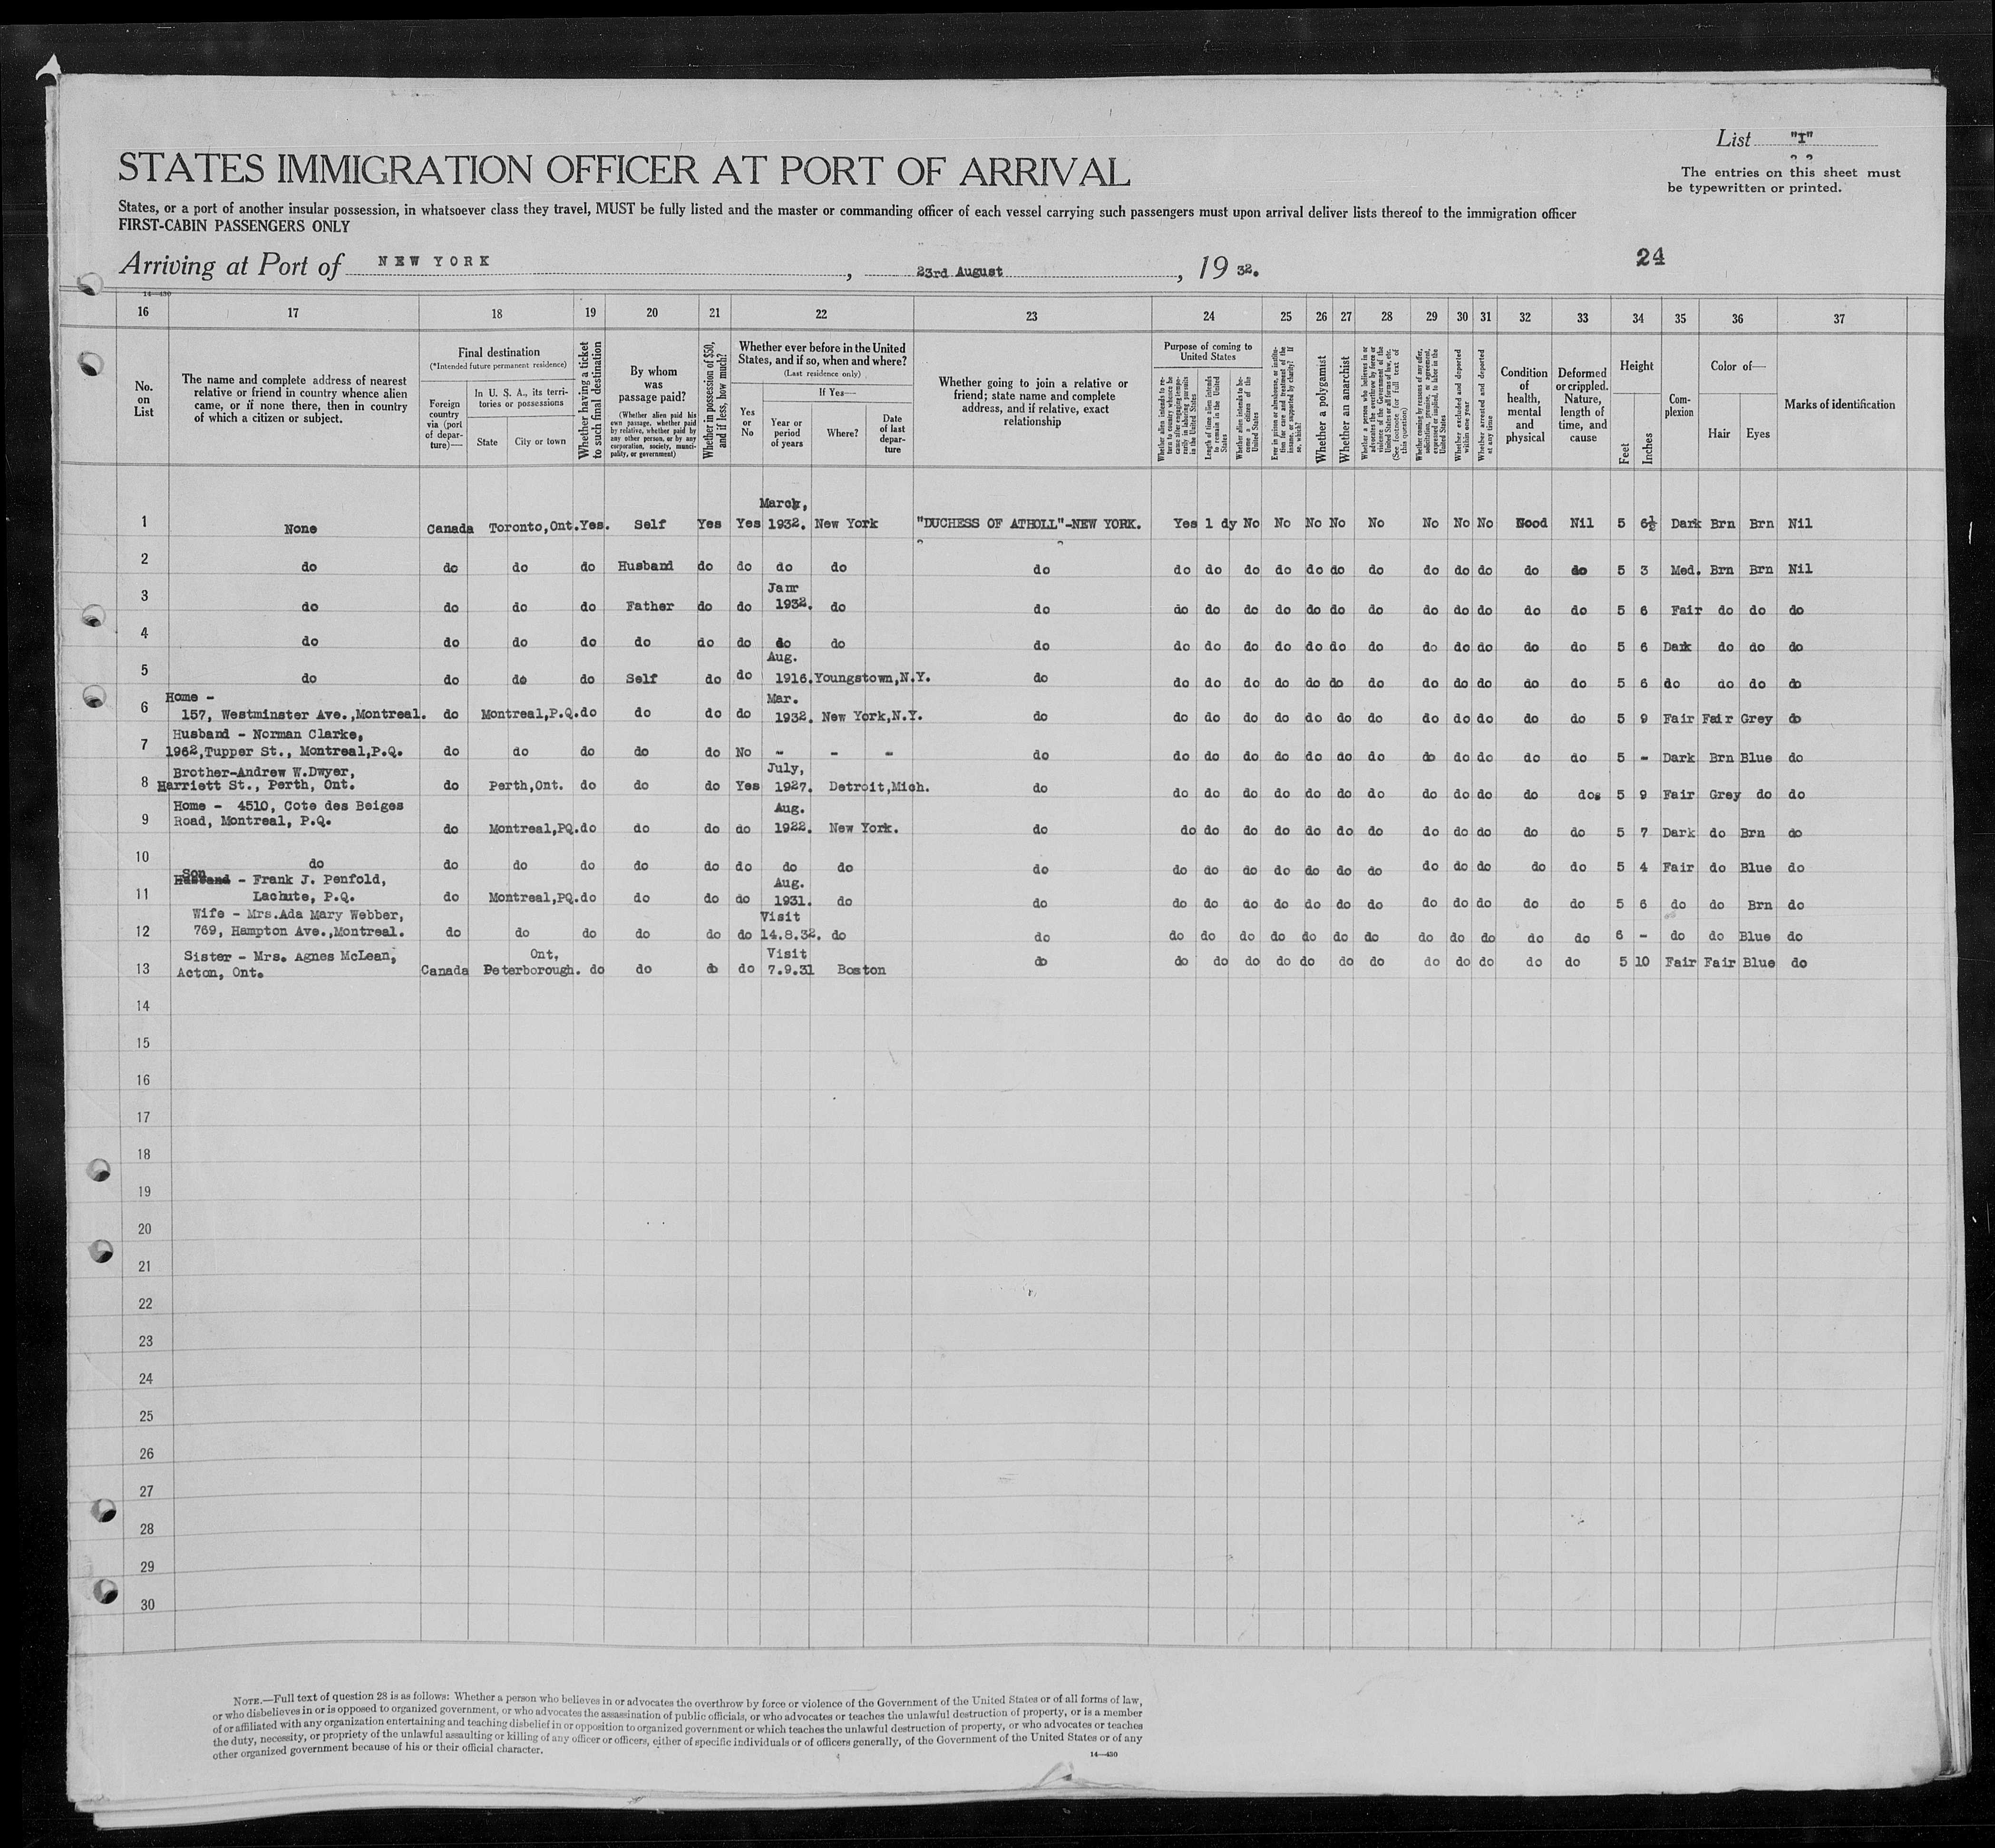 List "I"
The entries on this sheet must
be typewritten or printed.
STATES IMMIGRATION OFFICER AT PORT OF ARRIVAL
States, or a port of another insular possession, in whatsoever class they travel, MUST be fully listed and the master or commanding officer of each vessel carrying such passengers must upon arrival deliver lists thereof to the immigration officer
FIRST-CABIN PASSENGERS ONLY
Arriving at Port of NEW YORK, 23rd August, 19 32.
24
14—430
16 17 18 19 20 21 22 23 24 25 26 27 28 29 30 31 32 33 34 35 36 37
No. on List
The name and complete address of nearest relative or friend in country whence alien came, or if none there, then in country of which a citizen or subject.
Final destination
(*Intended future permanent residence)
Foreign country via (port of departure)—
In U. S. A., its territories or possessions
State
City or town
Whether having a ticket to such final destination
By whom was passage paid?
(Whether alien paid his own passage, whether paid by relative, whether paid by any other person, or by any corporation, society, municipality, or government)
Whether in possession of $50, and if less, how much?
Whether ever before in the United States, and if so, when and where?
(Last residence only)
Yes or No
If Yes—
Year or period of years
Where?
Date of last departure
Whether going to join a relative or friend; state name and complete address, and if relative, exact relationship
Purpose of coming to United States
Whether alien intends to return to country whence he came after engaging temporarily in laboring pursuits in the United States
Length of time alien intends to remain in the United States
Whether alien intends to become a citizen of the United States
Ever in prison or almshouse, or institution for care and treatment of the insane, or supported by charity? If so, which?
Whether a polygamist
Whether an anarchist
Whether a person who believes in or advocates the overthrow by force or violence of the Government of the United States or all forms of law, etc. (See footnote for full text of this question)
Whether coming by reasons of any offer, solicitation, promise, or agreement, expressed or implied, to labor in the United States
Whether excluded and deported within one year
Whether arrested and deported at any time
Condition of health, mental and physical
Deformed or crippled. Nature, length of time, and cause
Height
Feet
Inches
Complexion
Color of—
Hair
Eyes
Marks of identification
March,
1 None Canada Toronto,Ont. Yes. Self Yes Yes 1932. New York "DUCHESS OF ATHOLL"-NEW YORK. Yes 1 dy No No No No No No No No Nood Nil 5 6½ Dark Brn Brn Nil
2 do do do do Husband do do do do do do do do do do do do do do do do do 5 3 Med. Brn Brn Nil
Janr
3 do do do do Father do do 1932. do do do do do do do do do do do do do do 5 6 Fair do do do
4 do do do do do do do do do do do do do do do do do do do do do do 5 6 Dark do do do
Aug.
5 do do do do Self do do 1916. Youngstown,N.Y. do do do do do do do do do do do do do 5 6 do do do do
Home - Mar.
6 157, Westminster Ave.,Montreal. do Montreal,P.Q. do do do do 1932. New York,N.Y. do do do do do do do do do do do do do 5 9 Fair Fair Grey do
Husband - Norman Clarke,
7 1962,Tupper St., Montreal,P.Q. do do do do do No - - - do do do do do do do do do do do do do 5 - Dark Brn Blue do
Brother-Andrew W.Dwyer, July,
8 Harriett St., Perth, Ont. do Perth,Ont. do do do Yes 1927. Detroit,Mich. do do do do do do do do do do do do dos 5 9 Fair Grey do do
Home - 4510, Cote des Beiges Aug.
9 Road, Montreal, P.Q. do Montreal,PQ. do do do do 1922. New York. do do do do do do do do do do do do do 5 7 Dark do Brn do
10 do do do do do do do do do do do do do do do do do do do do do do 5 4 Fair do Blue do
Son
Husband - Frank J. Penfold, Aug.
11 Lachute, P.Q. do Montreal,PQ. do do do do 1931. do do do do do do do do do do do do do do 5 6 do do Brn do
Wife - Mrs.Ada Mary Webber, Visit
12 769, Hampton Ave.,Montreal. do do do do do do 14.8.32. do do do do do do do do do do do do do do 6 - do do Blue do
Sister - Mrs. Agnes McLean, Ont, Visit
13 Acton, Ont. Canada Peterborough. do do do do 7.9.31 Boston do do do do do do do do do do do do do 5 10 Fair Fair Blue do
14
15
16
17
18
19
20
21
22
23
24
25
26
27
28
29
30
NOTE.—Full text of question 28 is as follows: Whether a person who believes in or advocates the overthrow by force or violence of the Government of the United States or of all forms of law,
or who disbelieves in or is opposed to organized government, or who advocates the assassination of public officials, or who advocates or teaches the unlawful destruction of property, or is a member
of or affiliated with any organization entertaining and teaching disbelief in or opposition to organized government or which teaches the unlawful destruction of property, or who advocates or teaches
the duty, necessity, or propriety of the unlawful assaulting or killing of any officer or officers, either of specific individuals or of officers generally, of the Government of the United States or of any
other organized government because of his or their official character.
14—430